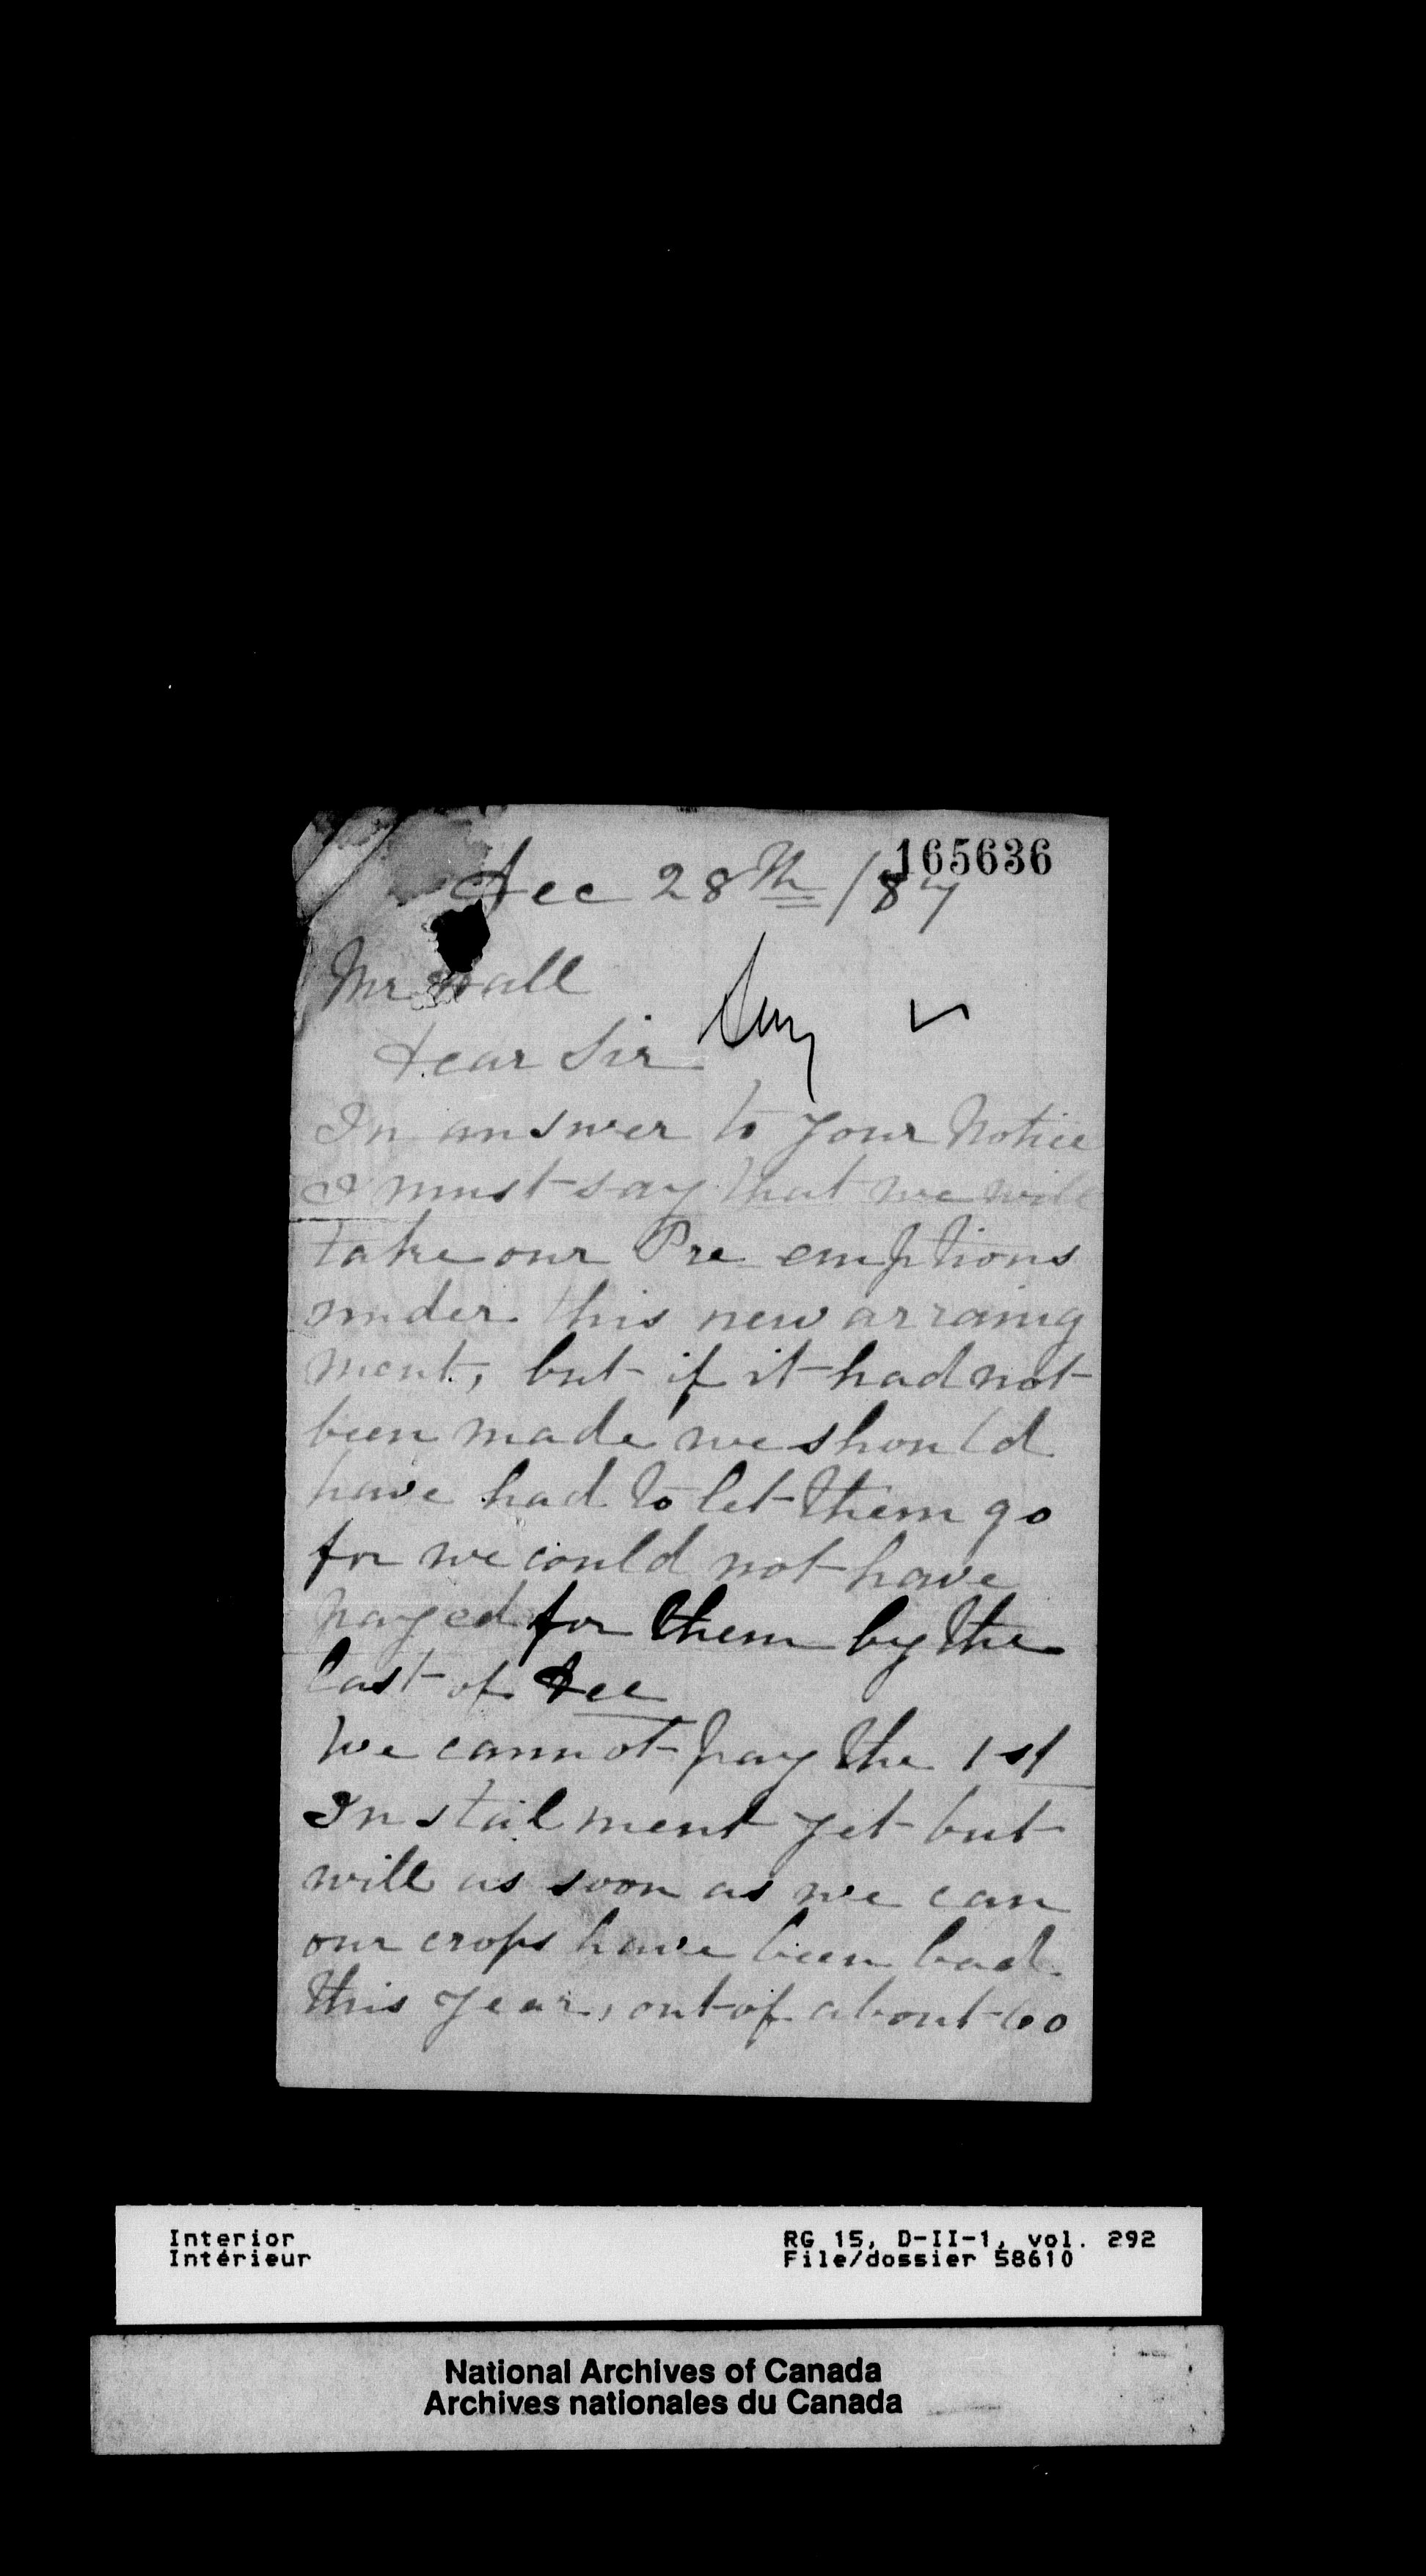 165636
Dec 28th /87
Mr Hall
Dear Sir
In answer to your Notice
I must say that we will
take our Pre emptions
under this new arraing
ment, but if it had not
been made we should
have had to let them go
for we could not have
payed for them by the
last of Dec
We cannot pay the 1st
Instalment yet but
will as soon as we can
our crops have been bad
this year, out of about 60
Interior
Intérieur
RG 15, D-II-1, vol. 292
File/dossier 58610
National Archives of Canada
Archives nationales du Canada